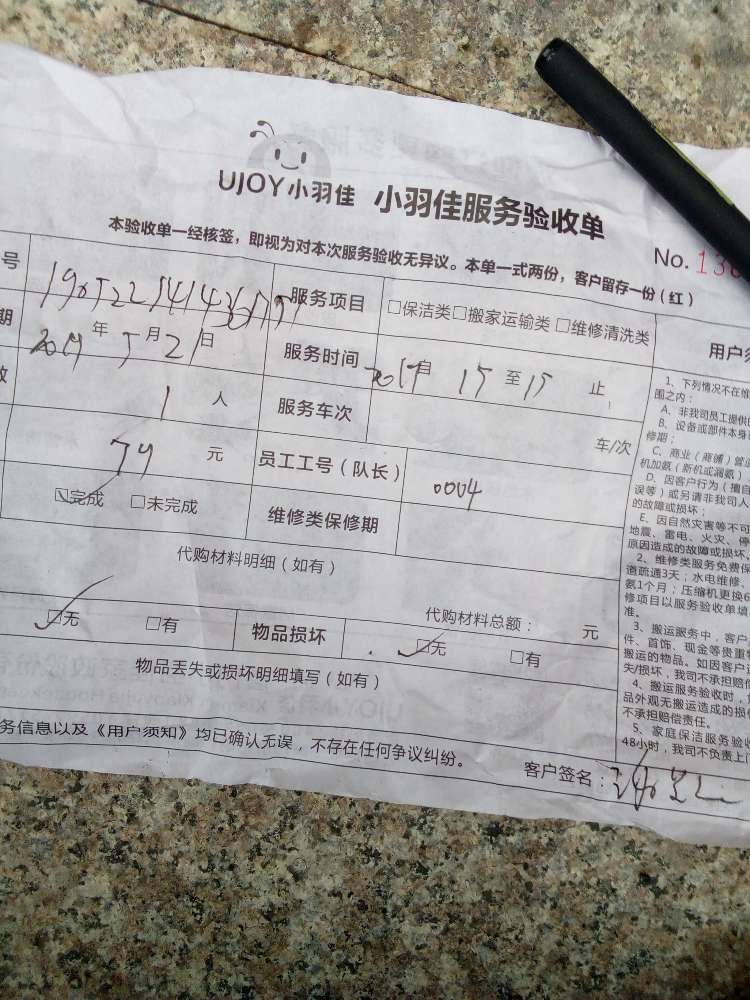 UJOY小羽佳 小羽佳服务验收单
本验收单一经核签，即视为对本次服务验收无异议。本单一式两份，客户留存一份（红）
No. 13
号 服务项目 □保洁类□搬家运输类□维修清洗类
期 2019年5月21日 服务时间 月 15至15止
数 1人 服务车次 车/次
79元 员工工号（队长） 0004
☑完成 □未完成 维修类保修期
代购材料明细（如有）
代购材料总额： 元
☑无 □有 物品损坏 ☑无 □有
物品丢失或损坏明细填写（如有）
务信息以及《用户须知》均已确认无误，不存在任何争议纠纷。
客户签名：
用户须
1、下列情况不在维
围之内：
A、非我司员工提供
B、设备或部件本身
修期；
C、商业（商铺）
机加氨（新机或漏氨）
D、因客户行为（擅自
误等）或另请非我司人
的故障或损坏；
E、因自然灾害等不可
地震、雷电、火灾、停
原因造成的故障或损坏
2、维修类服务免费保
道疏通3天；水电维修、
氨1个月；压缩机更换6
修项目以服务验收单填
准。
3、搬运服务中，客户
件、首饰、现金等贵重
搬运的物品。如因客户
失/损坏，我司不承担赔偿
4、搬运服务验收时，
品外观无搬运造成的损
不承担赔偿责任。
5、家庭保洁服务验收
48小时，我司不负责上门